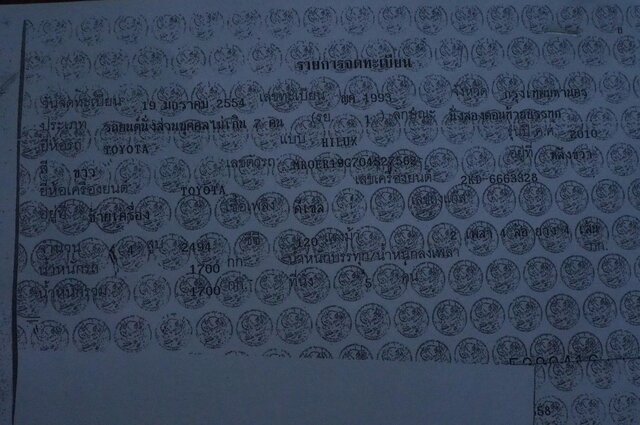 รายการจดทะเบียน
วันจดทะเบียน 19 มกราคม 2554 เลขทะเบียน ฆค 1993 จังหวัด กรุงเทพมหานคร
ประเภท รถยนต์นั่งส่วนบุคคลไม่เกิน 7 คน รย. 1 ลักษณะ นั่งสองตอนท้ายบรรทุก
ยี่ห้อรถ TOYOTA แบบ HILUX รุ่นปี ค.ศ. 2010
สี ขาว เลขตัวรถ อยู่ที่
ยี่ห้อเครื่องยนต์ TOYOTA เลขเครื่องยนต์ 2KD-6663328
อยู่ที่ ซ้ายเครื่อง เชื้อเพลิง ดีเซล เลขถังแก๊ส
จำนวน 4 สูบ 2494 ซีซี 120 แรงม้า 2 เพลา 4 ล้อ ยาง 4 เส้น
น้ำหนักรถ 1700 กก. น้ำหนักบรรทุก/น้ำหนักลงเพลา กก.
น้ำหนักรวม 1700 กก. ที่นั่ง 5 คน